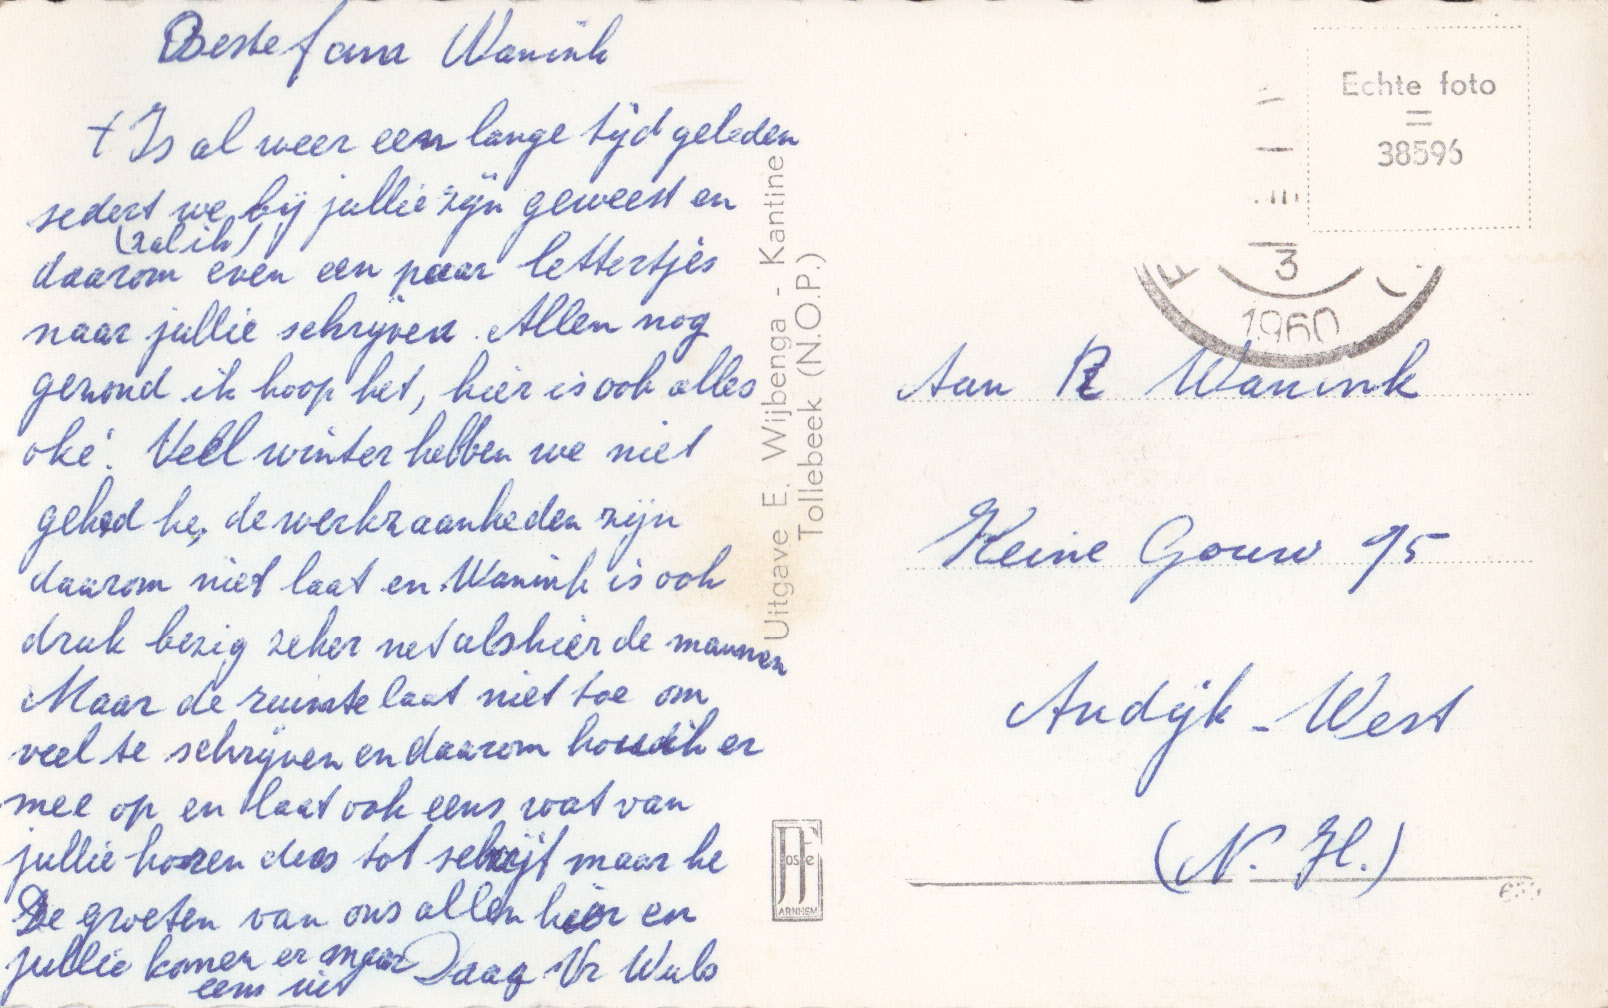 Beste fam Wanink
t Is al weer een lange tijd geleden
sedert we bij jullie zijn geweest en
(zal ik)
daarom even een paar lettertjes
naar jullie schrijven. Allen nog
gezond ik hoop het, hier is ook alles
oké! Veel winter hebben we niet
gehad he, de werkzaamheden zijn
daarom niet laat en Wanink is ook
druk bezig zeker net als hier de mannen
Maar de ruimte laat niet toe om
veel te schrijven en daarom houd ik er
mee op en laat ook eens wat van
jullie horen dus tot schrijft maar he
De groeten van ons allen hier en
jullie komen er maar
eens uit
Daag Vr Wals
Uitgave E. Wijbenga - Kantine
Tollebeek (N.O.P.)
JF
osse
ARNHEM
Echte foto
=
38596
3
1960
Aan R Wanink
Kleine Gouw 95
Andijk - West
(N. H.)